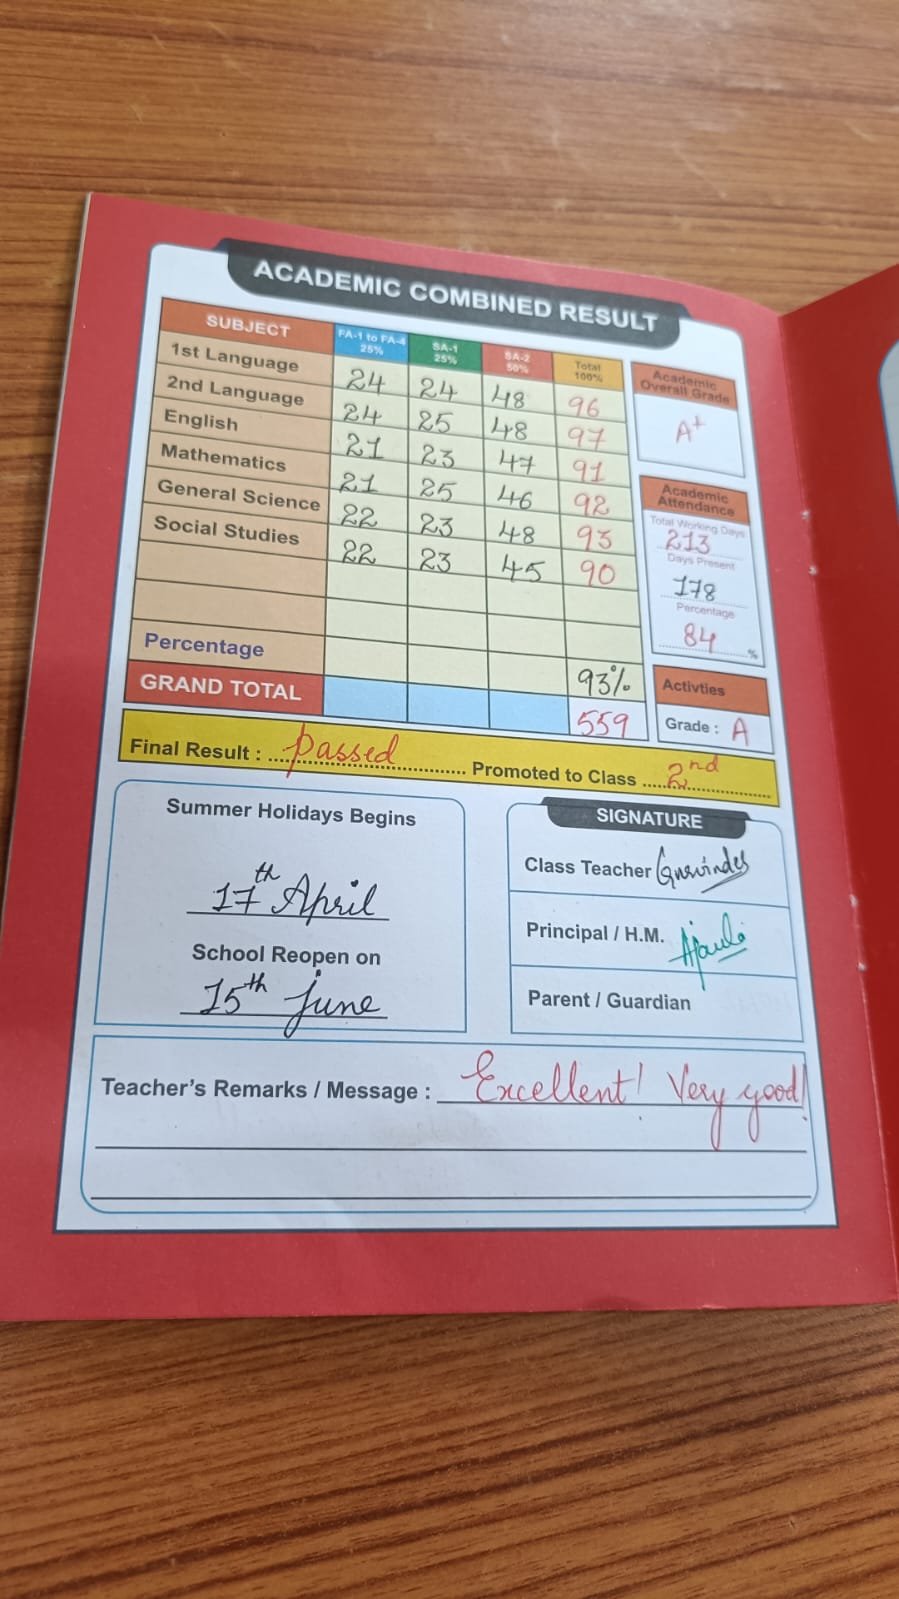 ACADEMIC COMBINED RESULT
SUBJECT FA-1 to FA-4 25% SA-1 25% SA-2 50% Total 100%
1st Language 24 24 48 96
2nd Language 24 25 48 97
English 21 23 47 91
Mathematics 21 25 46 92
General Science 22 23 48 93
Social Studies 22 23 45 90
Percentage 93%
GRAND TOTAL 559
Academic
Overall Grade
A+
Academic
Attendance
Total Working Days
213
Days Present
178
Percentage
84 %
Activties
Grade : A
Final Result : passed Promoted to Class 2nd
Summer Holidays Begins
17th April
School Reopen on
15th June
SIGNATURE
Class Teacher
Principal / H.M.
Parent / Guardian
Teacher's Remarks / Message : Excellent! Very good!